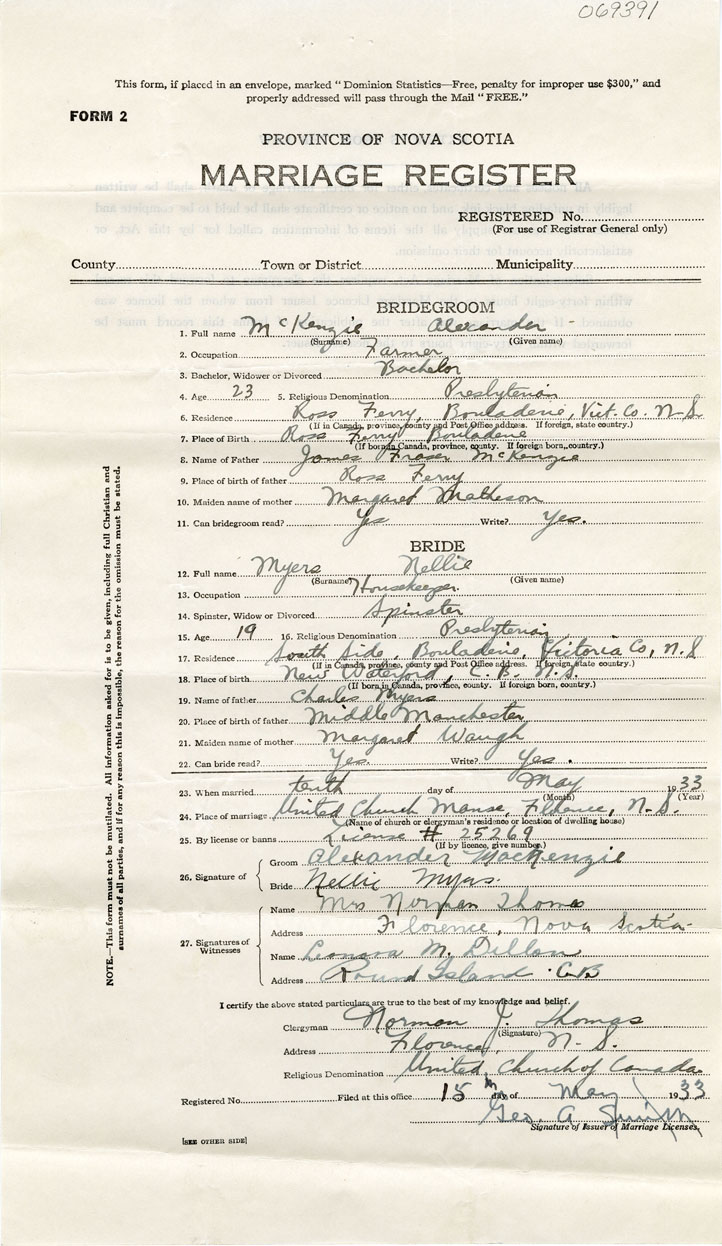 069391
This form, if placed in an envelope, marked "Dominion Statistics—Free, penalty for improper use $300," and
properly addressed will pass through the Mail "FREE."
FORM 2
PROVINCE OF NOVA SCOTIA
MARRIAGE REGISTER
REGISTERED No.
(For use of Registrar General only)
County Town or District Municipality
BRIDEGROOM
1. Full name McKenzie Alexander
(Surname) (Given name)
2. Occupation Farmer
3. Bachelor, Widower or Divorced Bachelor
4. Age 23 5. Religious Denomination Presbyterian
6. Residence Ross Ferry, Bouladerie, Vict. Co. N.S.
(If in Canada, province, county and Post Office address. If foreign, state country.)
7. Place of Birth Ross Ferry Bouladerie
(If born in Canada, province, county. If foreign born, country.)
8. Name of Father James Fraser McKenzie
9. Place of birth of father Ross Ferry
10. Maiden name of mother Margaret Matheson
11. Can bridegroom read? Yes Write? Yes.
BRIDE
12. Full name Myers Nellie
(Surname) (Given name)
13. Occupation Housekeeper.
14. Spinster, Widow or Divorced Spinster
15. Age 19 16. Religious Denomination Presbyterian
17. Residence South Side, Bouladerie, Victoria Co, N.S
(If in Canada, province, county and Post Office address. If foreign, state country.)
18. Place of birth New Waterford, C.B. N.S.
(If born in Canada, province, county. If foreign born, country.)
19. Name of father Charles Myers
20. Place of birth of father Middle Manchester
21. Maiden name of mother Margaret Waugh
22. Can bride read? Yes. Write? Yes.
23. When married tenth day of May 1933
(Month) (Year)
24. Place of marriage United Church Manse, Florence, N.S.
(Name of church or clergyman's residence or location of dwelling house)
25. By license or banns License # 25269
(If by licence, give number.)
26. Signature of Groom Alexander MacKenzie
Bride Nellie Myers.
27. Signatures of Witnesses
Name Mrs Norman Thomas
Address Florence, Nova Scotia
Name Leonora M. Dillon
Address Round Island. C.B
I certify the above stated particulars are true to the best of my knowledge and belief.
Clergyman Norman J. Thomas
(Signature)
Address Florence, N.S.
Religious Denomination United Church of Canada.
Registered No. Filed at this office 15th day of May 1933
Geo. A Smith
Signature of Issuer of Marriage Licenses.
[SEE OTHER SIDE]
NOTE.—This form must not be mutilated. All information asked for is to be given, including full Christian and
surnames of all parties, and if for any reason this is impossible, the reason for the omission must be stated.